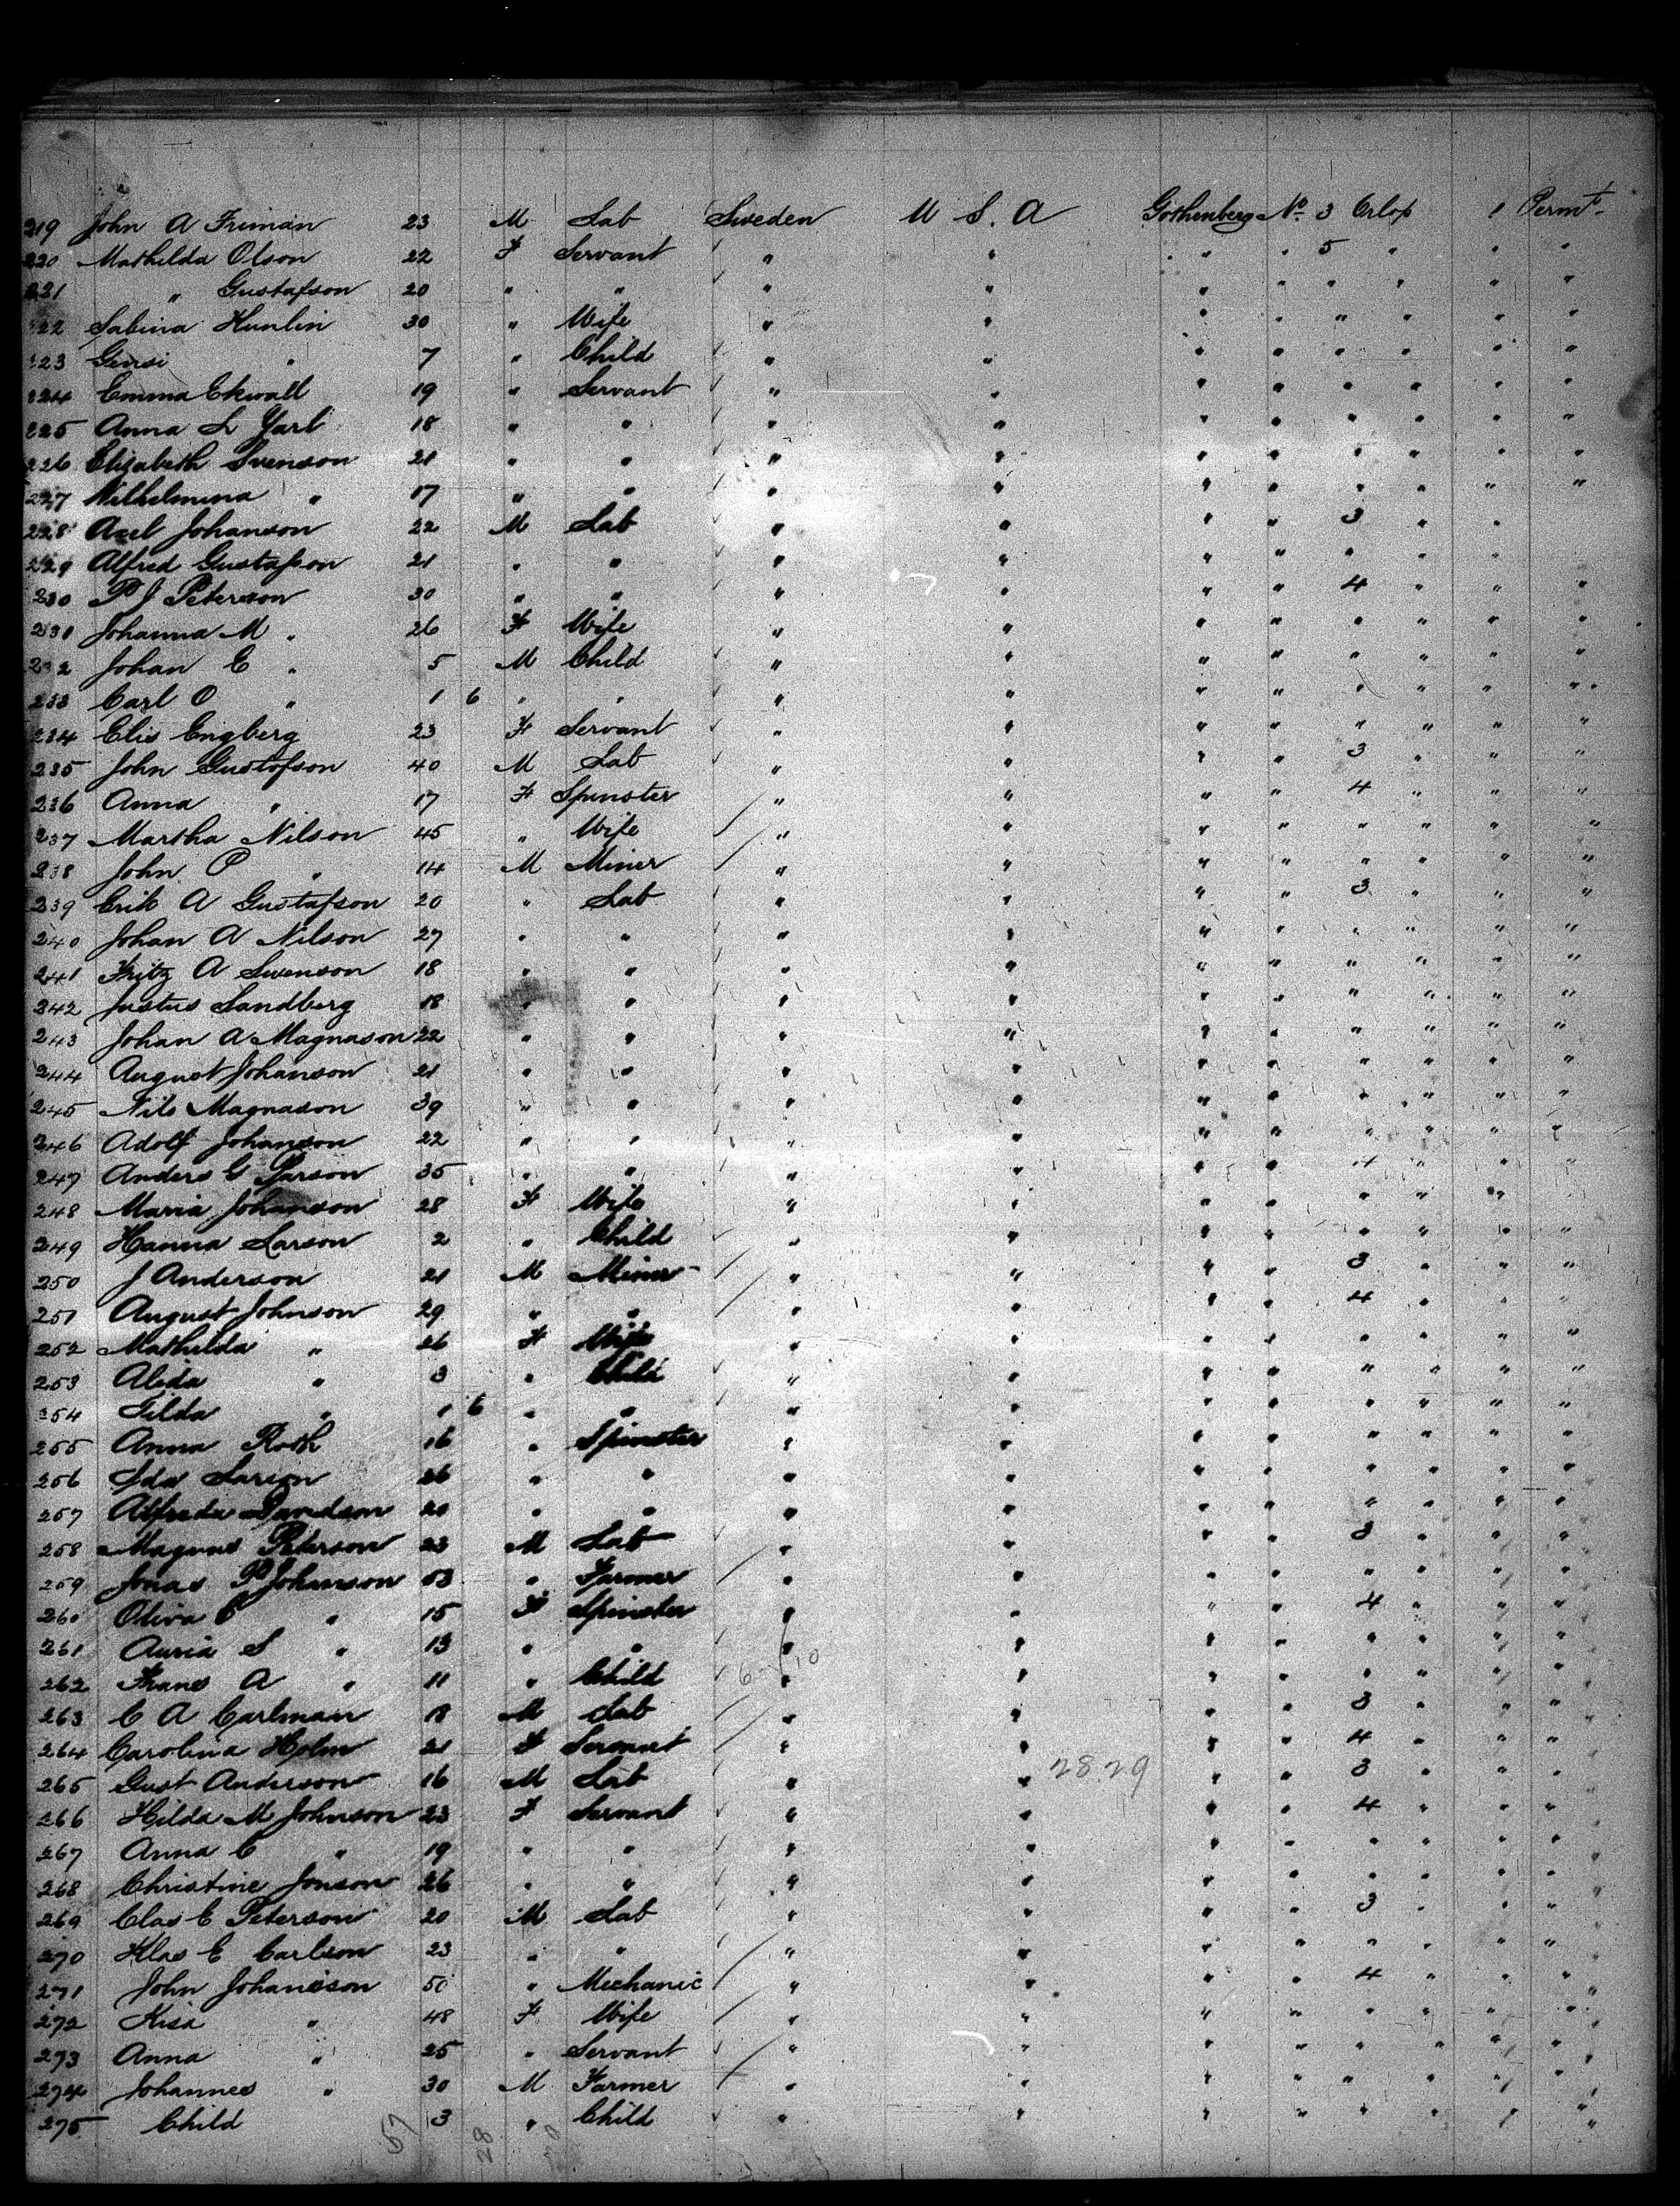 219 John A Friman 23 M Lab Sweden U S. A Gothenberg No 3 Orlop 1 Permt
220 Mathilda Olson 22 F Servant " " " " 5 " " "
221 " Gustafson 20 " " " " " " " " " "
222 Sabina Hunlin 30 " Wife " " " " " " " "
223 Gensi " 7 " Child " " " " " " " "
224 Emma Ekwall 19 " Servant " " " " " " " "
225 Anna L Yarl 18 " " " " " " " " " "
226 Elizabeth Svenson 21 " " " " " " " " " "
227 Wilhelmina " 17 " " " " " " " " " "
228 Axel Johanson 22 M Lab " " " " 3 " "
229 Alfred Gustafson 21 " " " " " " " " " "
230 P J Peterson 30 " " " " " " 4 " " "
231 Johanna M " 26 F Wife " " " " " " " "
232 Johan E " 5 M Child " " " " " " " "
233 Carl O " 1 6 " " " " " " " " " "
234 Elis Engberg 23 F Servant " " " " " " " "
235 John Gustofson 40 M Lab " " " " 3 " " "
236 Anna " 17 F Spinster " " " " 4 " " "
237 Martha Nilson 45 " Wife " " " " " " " "
238 John P " 14 M Miner " " " " " " " "
239 Erik A Gustafson 20 " Lab " " " " 3 " " "
240 Johan A Nilson 27 " " " " " " " " " "
241 Fritz A Swenson 18 " " " " " " " " " "
242 Justus Sandberg 18 " " " " " " " " " "
243 Johan A Magnason 22 " " " " " " " " " "
244 August Johanson 21 " " " " " " " " " "
245 Nils Magnason 39 " " " " " " " " " "
246 Adolf Johanson 22 " " " " " " " " " "
247 Anders G Parson 35 " " " " " " 4 " " "
248 Maria Johanson 28 F Wife " " " " " " " "
249 Hanna Larson 2 " Child " " " " " " " "
250 J Anderson 21 M Miner " " " " 3 " " "
251 August Johnson 29 " " " " " " 4 " " "
252 Mathilda " 26 F Wife " " " " " " " "
253 Alida " 3 " Child " " " " " " " "
254 Tilda " 1 6 " " " " " " " " " "
255 Anna Roth 16 " Spinster " " " " " " " "
256 Ida Larson 26 " " " " " " " " " "
257 Alfreda Davidson 20 " " " " " " " " " "
258 Magnus Peterson 23 M Lab " " " " 3 " " "
259 Jonas P Johanson 53 " Farmer " " " " " " " "
260 Oliva C " 15 F Spinster " " " " 4 " " "
261 Auria S " 13 " " " " " " " " " "
262 Frans A " 11 " Child 6 10 " " " " " " " "
263 C A Carlman 18 M Lab " " " " 3 " " "
264 Carolina Holm 21 F Servant " " " " 4 " " "
265 Gust Anderson 16 M Lab " " 2829 " " 3 " " "
266 Hilda M Johnson 23 F Servant " " " " 4 " " "
267 Anna C " 19 " " " " " " " " " "
268 Christine Jonson 26 " " " " " " " " " "
269 Clas E Peterson 20 M Lab " " " " 3 " " "
270 Klas E Carlson 23 " " " " " " " " " "
271 John Johansson 50 " Mechanic " " " " 4 " " "
272 Kisa " 48 F Wife " " " " " " " "
273 Anna " 25 " Servant " " " " " " " "
274 Johannes " 30 M Farmer " " " " " " " "
275 Child 3 " Child " " " " " " " "
57 28